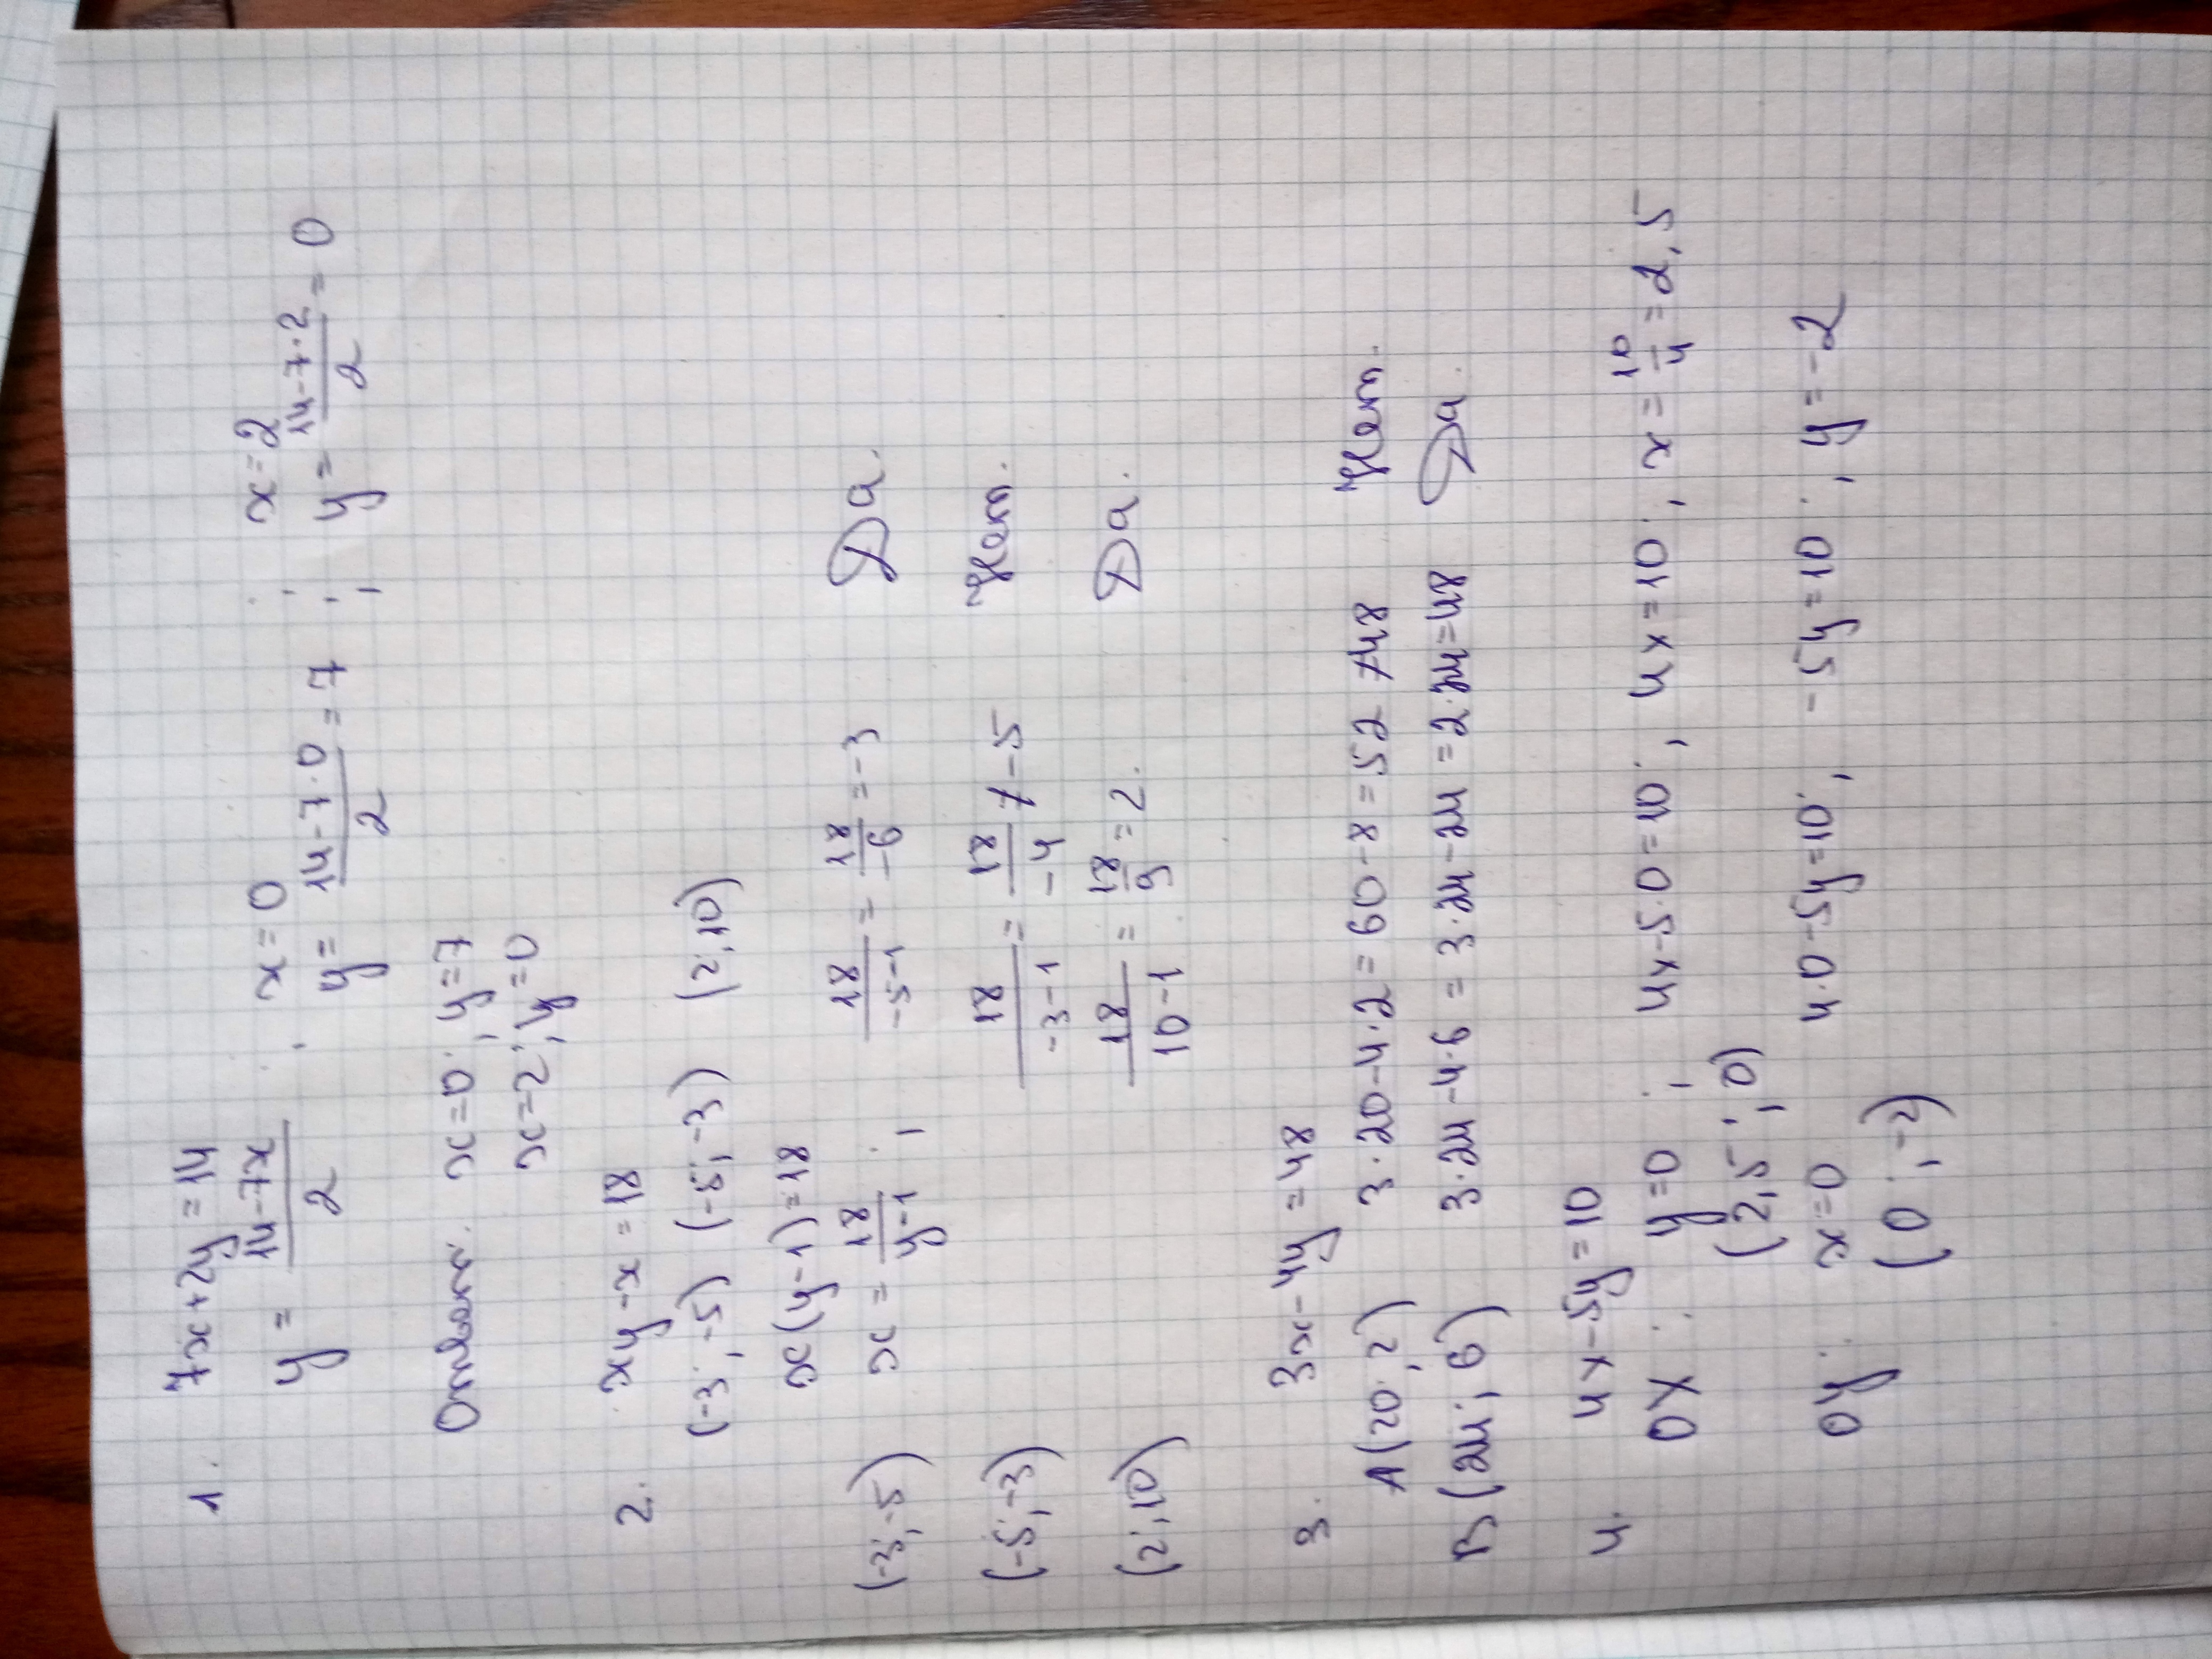 1. 7x+2y=14
y = (14-7x)/2 ; x=0 y = (14-7·0)/2 = 7 ; x=2 y = (14-7·2)/2 = 0
Ответ: x=0; y=7
x=2; y=0
2. xy-x=18
(-3;-5) (-5;-3) (2;10)
x(y-1)=18
(-3;-5) x = 18/(y-1) ; 18/(-5-1) = 18/(-6) = -3 Да.
(-5;-3) 18/(-3-1) = 18/(-4) ≠ -5 Нет.
(2;10) 18/(10-1) = 18/9 = 2. Да.
3. 3x-4y=48
A(20;2) 3·20-4·2=60-8=52 ≠48 Нет.
B(24;6) 3·24-4·6=3·24-24=2·24=48 Да.
4. 4x-5y=10
OX: y=0 ; 4x-5·0=10; 4x=10; x=10/4=2,5
(2,5;0)
OY: x=0 4·0-5y=10; -5y=10; y=-2
(0;-2)